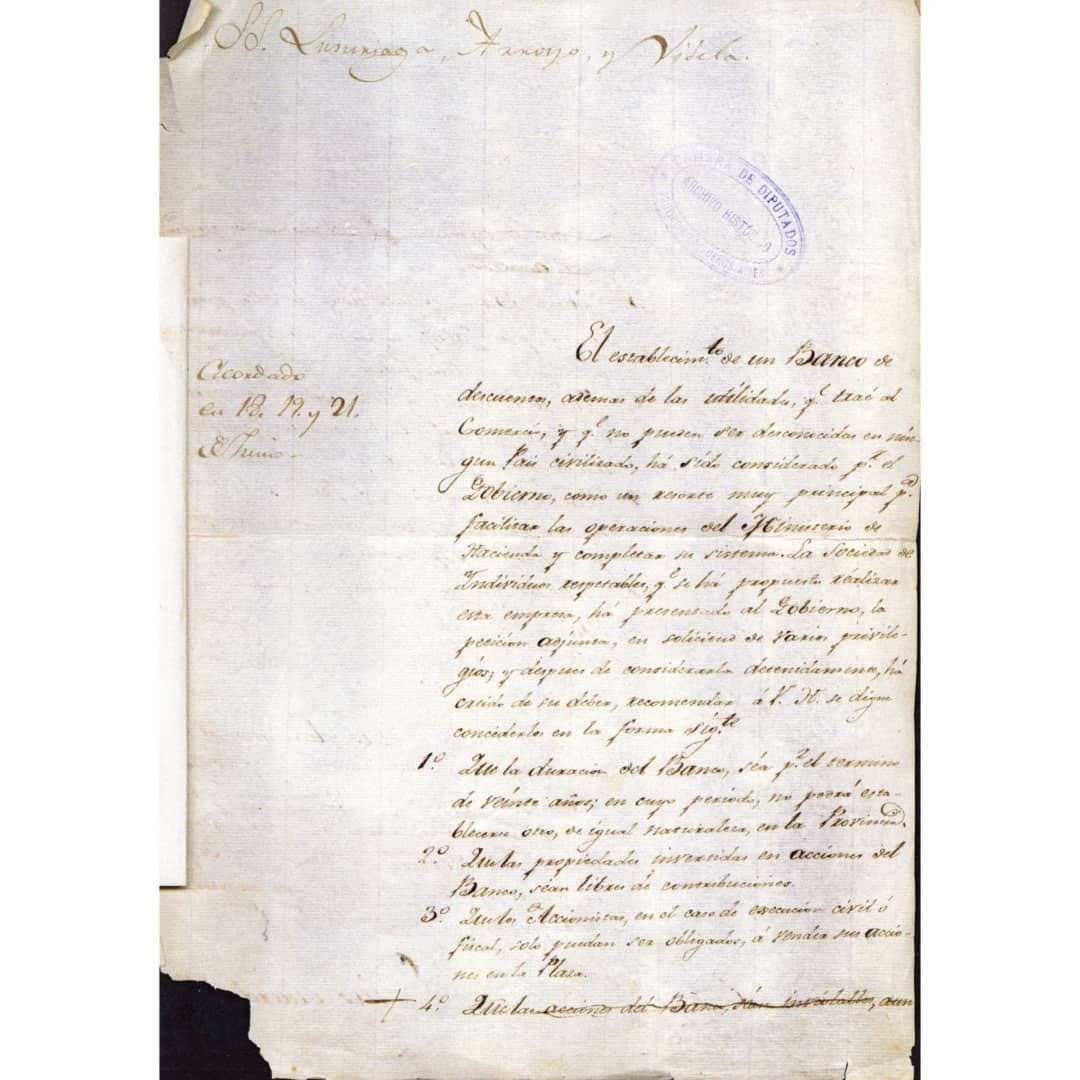 SS. Lusuriaga, Arroyo, y Videla.
CAMARA DE DIPUTADOS
ARCHIVO HISTÓRICO
BUENOS AIRES
Acordado
en 18. 19. y 21.
El establecim.to de un Banco de
descuentos, ademas de las utilidades, q.e traé al
Comercio, y q.e no pueden ser desconocidas en nin-
gun Pais civilizado, há sido considerado p.r el
Gobierno, como un resorte muy principal p.a
facilitar las operaciones del Ministerio de
Hacienda y completar su sistema. La Sociedad de
Individuos respetables, q.e se há propuesto réalizar
esta empresa, há presentado al Gobierno, la
peticion adjunta, en solicitud de varios privile-
gios; y despues de considerarla detenidamente, há
creido de su deber, recomendar á V. H. se digne
concederlos en la forma sig.te
1.o Que la duracion del Banco, séa p.r el termino
de veinte años; en cuyo período, no podrá esta-
blecerse otro, de igual naturaleza, en la Provincia.
2.o Que las propiedades invertidas en acciones del
Banco, séan libres de contribuciones.
3.o Que los Accionistas, en el caso de execucion civil ó
fiscal, solo puedan ser obligados, á vender sus accio-
nes en la Plaza.
4.o Que las acciones del Banco, séan inviolables, aun